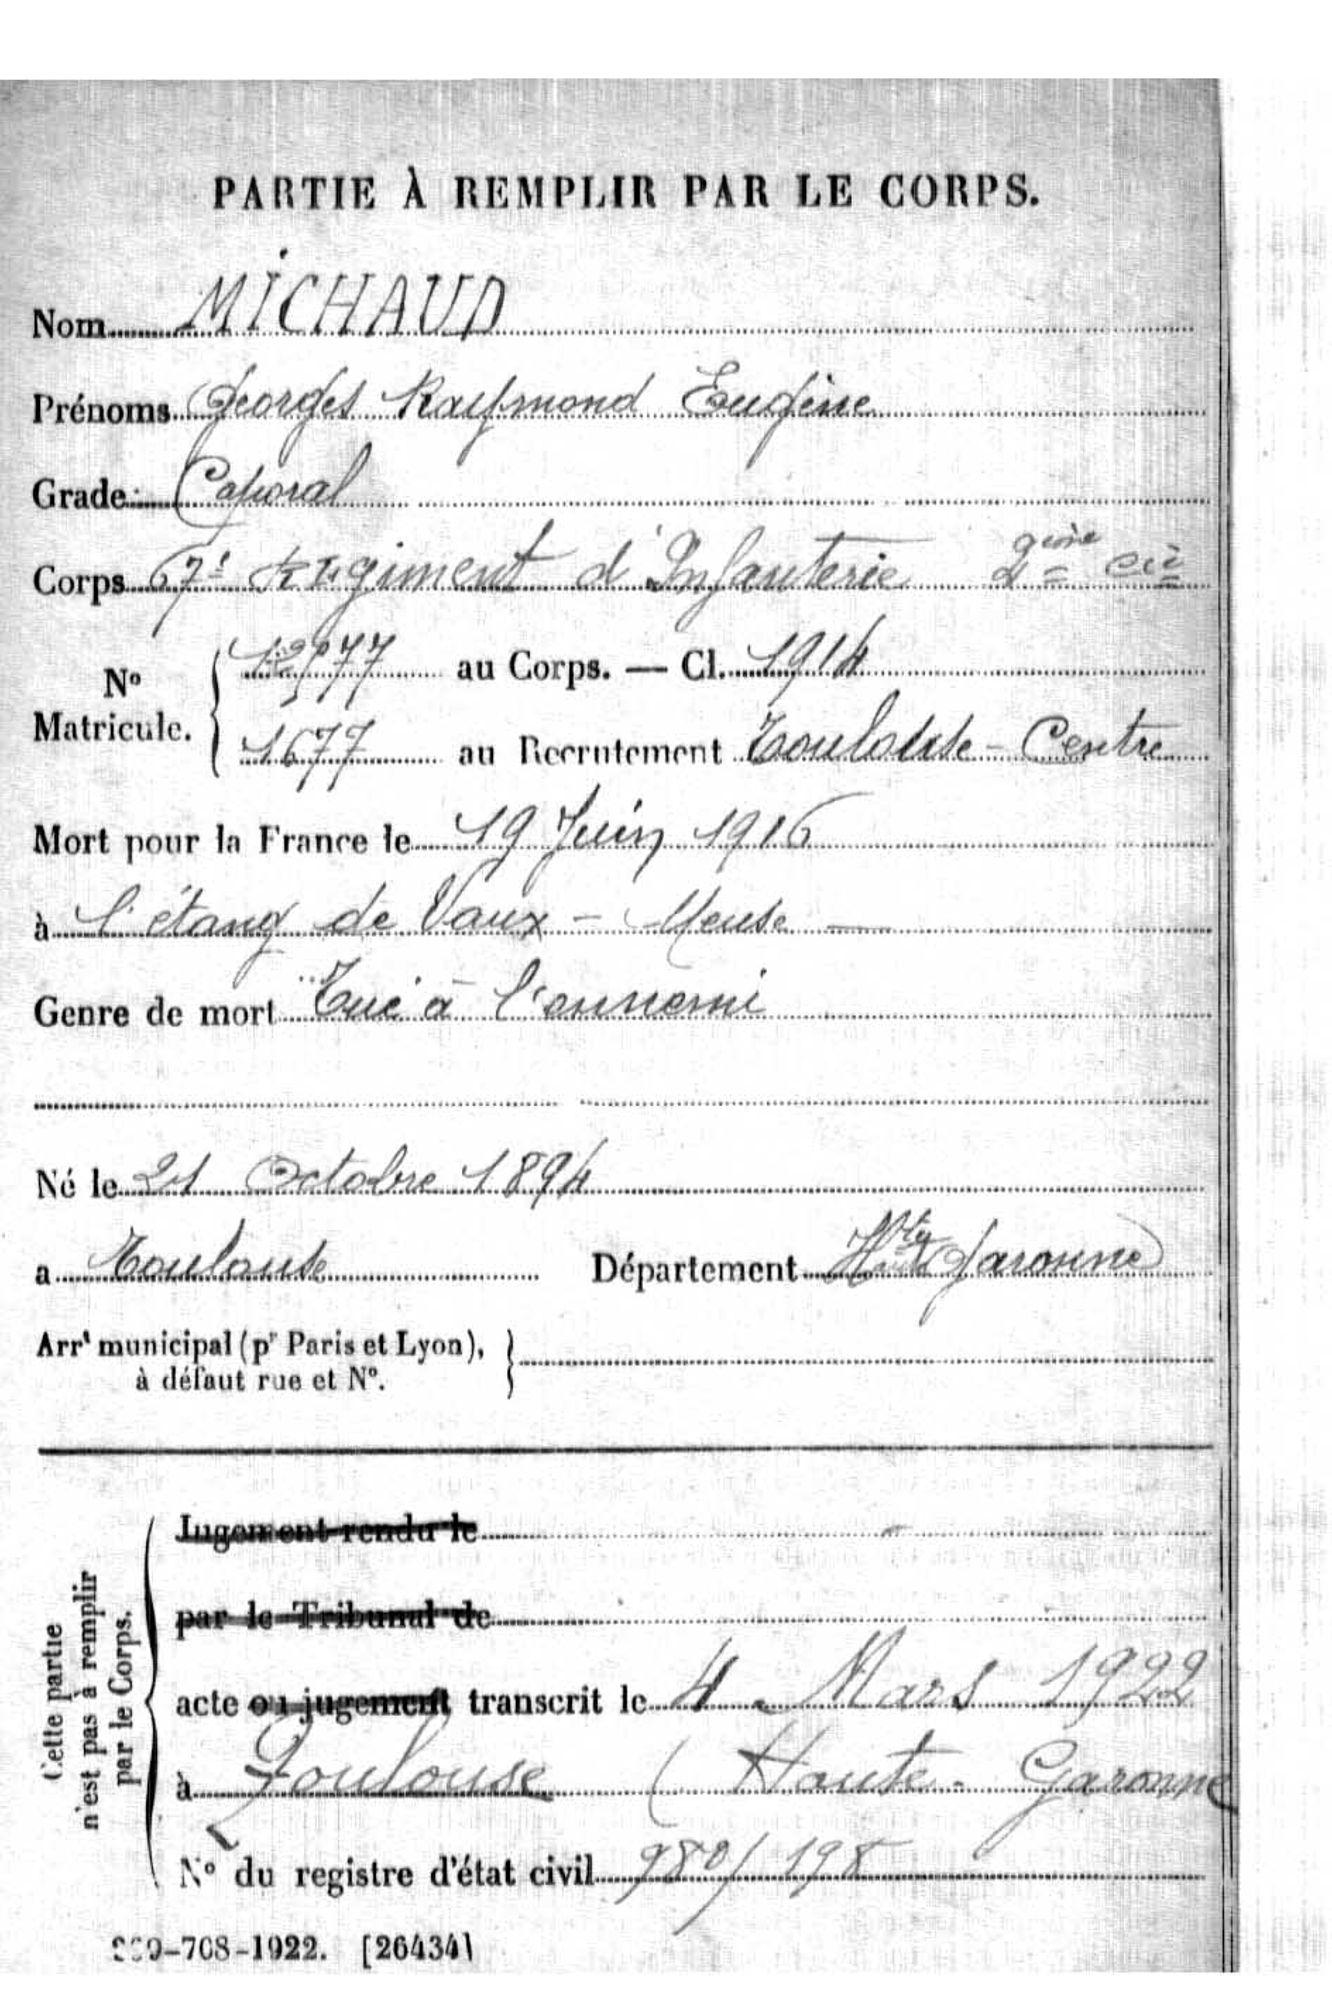 PARTIE À REMPLIR PAR LE CORPS.
Nom MICHAUD
Prénoms Georges Raymond Eugène
Grade Caporal
Corps 67e Régiment d'Infanterie 2ème Cie
No Matricule. { 977 au Corps. — Cl. 1914
1677 au Recrutement Toulouse - Centre
Mort pour la France le 19 Juin 1916
à l'étang de Vaux - Meuse —
Genre de mort Tué à l'ennemi
Né le 21 Octobre 1894
a Toulouse Département Hte Garonne
Arrt municipal (pr Paris et Lyon), }
à défaut rue et No.
Cette partie
n'est pas à remplir
par le Corps.
Jugement rendu le
par le Tribunal de
acte ou jugement transcrit le 4 Mars 1922
à Toulouse (Haute-Garonne
No du registre d'état civil 980/198
-708-1922. [26434]